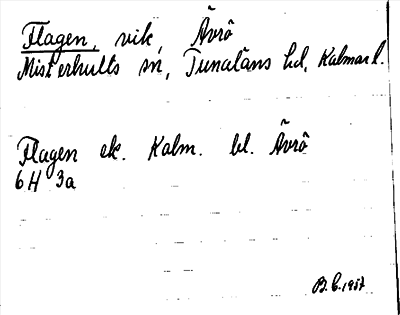 Flagen, vik, Ävrö
Misterhults sn, Tunaläns hd, Kalmar l.
Flagen ek. Kalm. bl. Ävrö
6H 3a